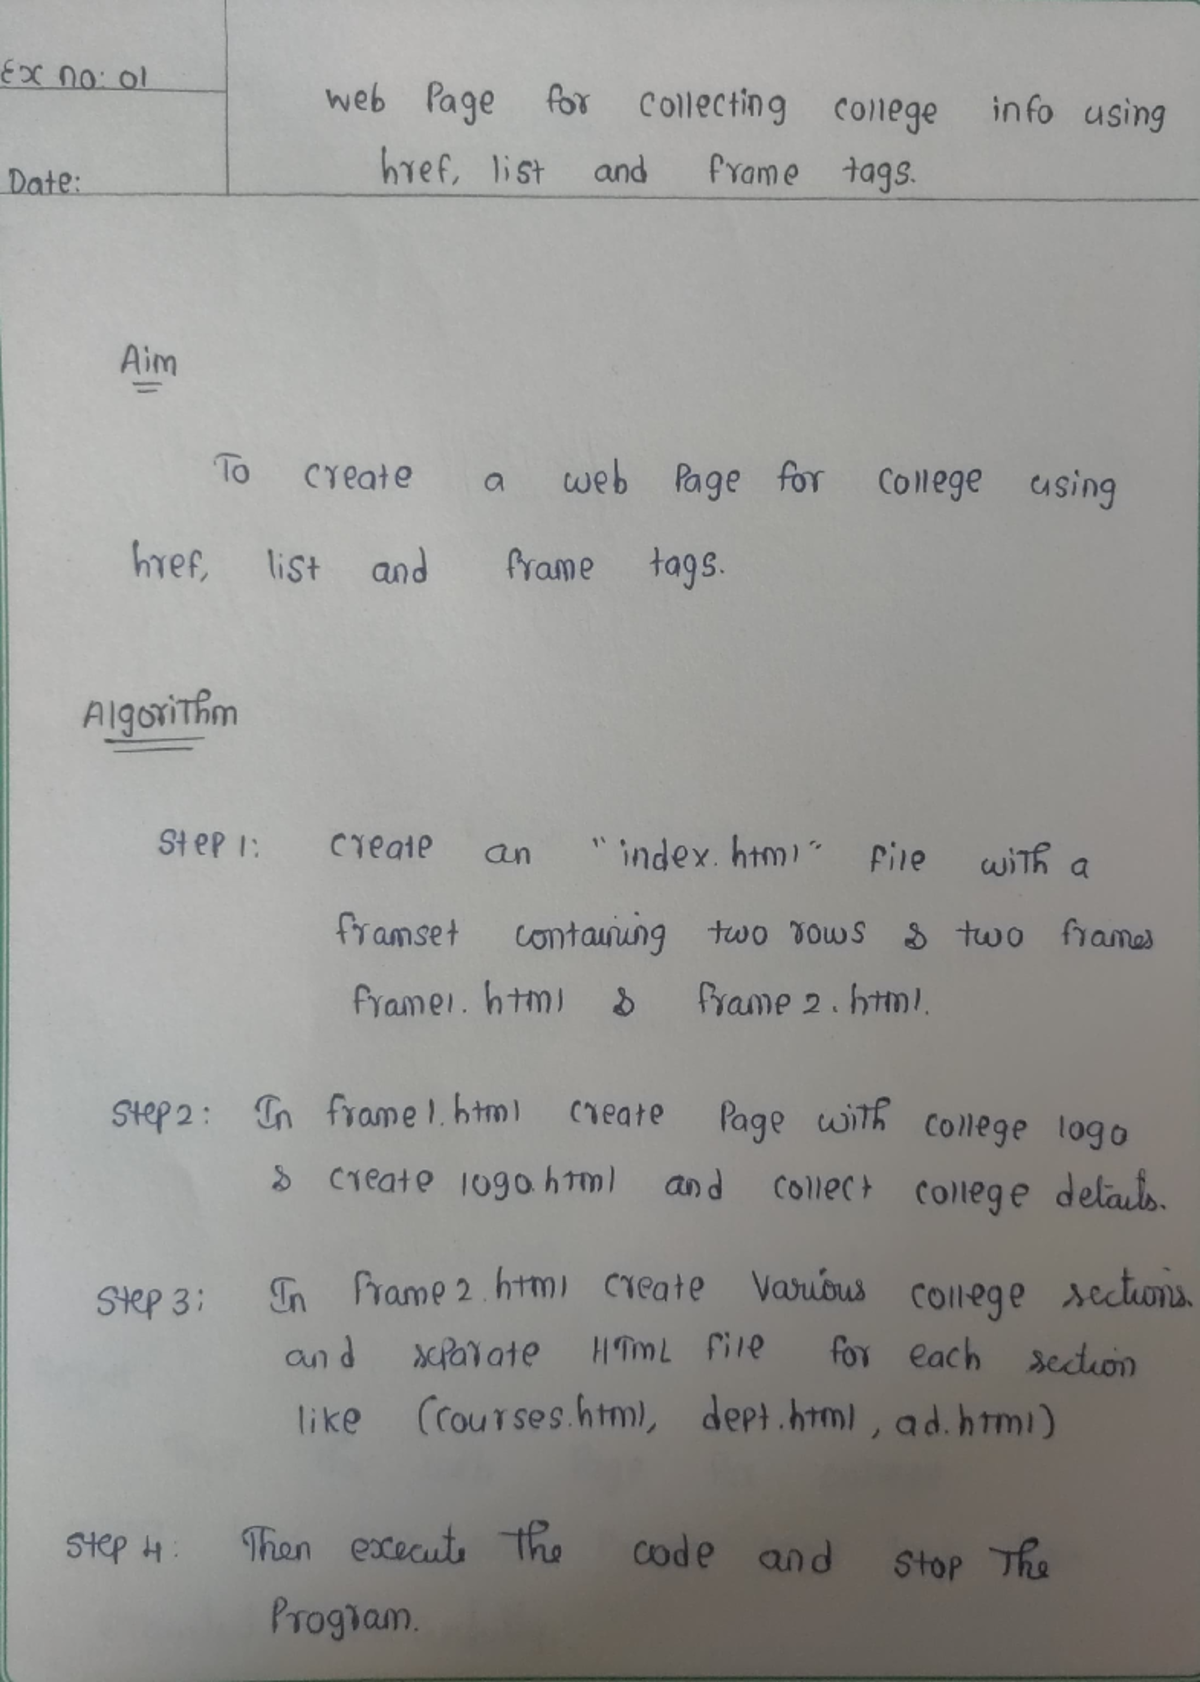 Ex no: 01
Date:
web Page for collecting college info using
href, list and frame tags.
Aim
To create a web Page for college using
href, list and frame tags.
Algorithm
Step 1: create an "index.html" file with a
framset containing two rows & two frames
frame1.html & frame2.html.
Step2: In frame1.html create Page with college logo
& create logo.html and collect college details.
Step 3: In frame2.html create various college sections.
and separate HTML file for each section
like (courses.html, dept.html, ad.html)
Step 4: Then execute the code and stop the
Program.